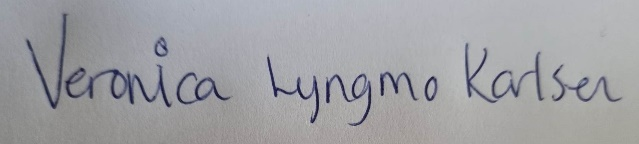 Veronica Lyngmo Karlsen